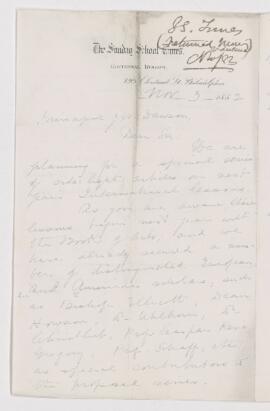 S.S. Times
(Returned
Nov/82
The Sunday School Times,
EDITORIAL ROOMS,
Chestnut St. Philadelphia
Nov. 3 1882
Principal J. W. Dawson,
Dear Sir,
We are
planning for a special series
of articles on next
year's International Lessons.
As you are aware these
lessons begin next year with
the Book of Acts, and we
have already secured a num-
ber of distinguished European
and American scholars, such
as Bishop Ellicott, Dean
Howson, Dr
Prof. Caspar René
Gregory, Prof. Schaff, etc.
as special contributors to
the proposed series.